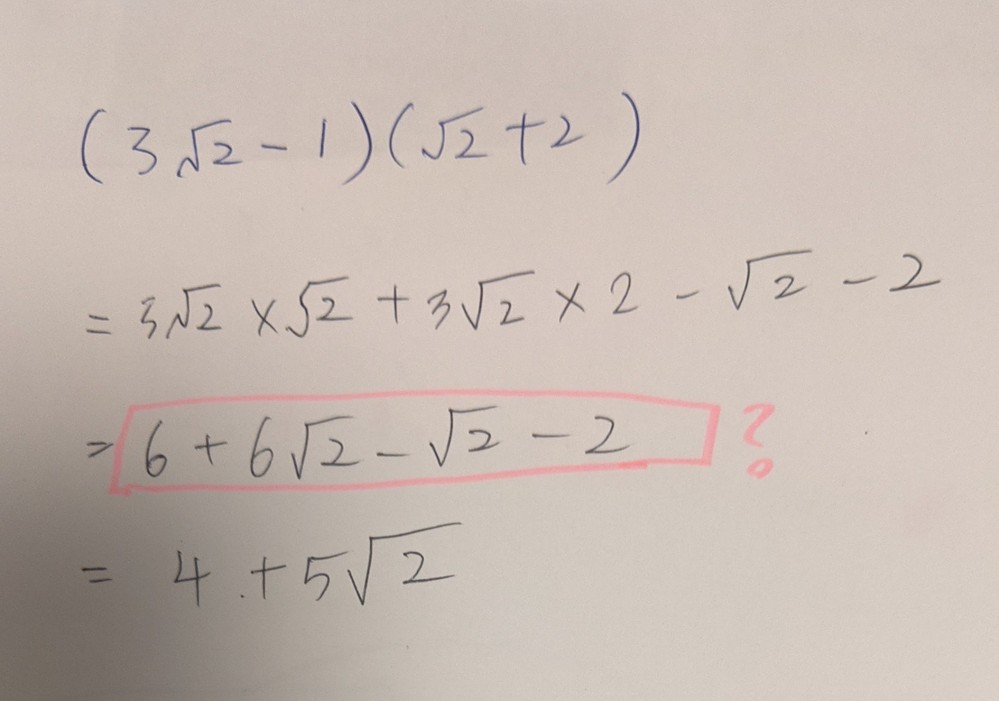 (3√2-1)(√2+2)
=3√2×√2+3√2×2-√2-2
=6+6√2-√2-2 ?
=4+5√2